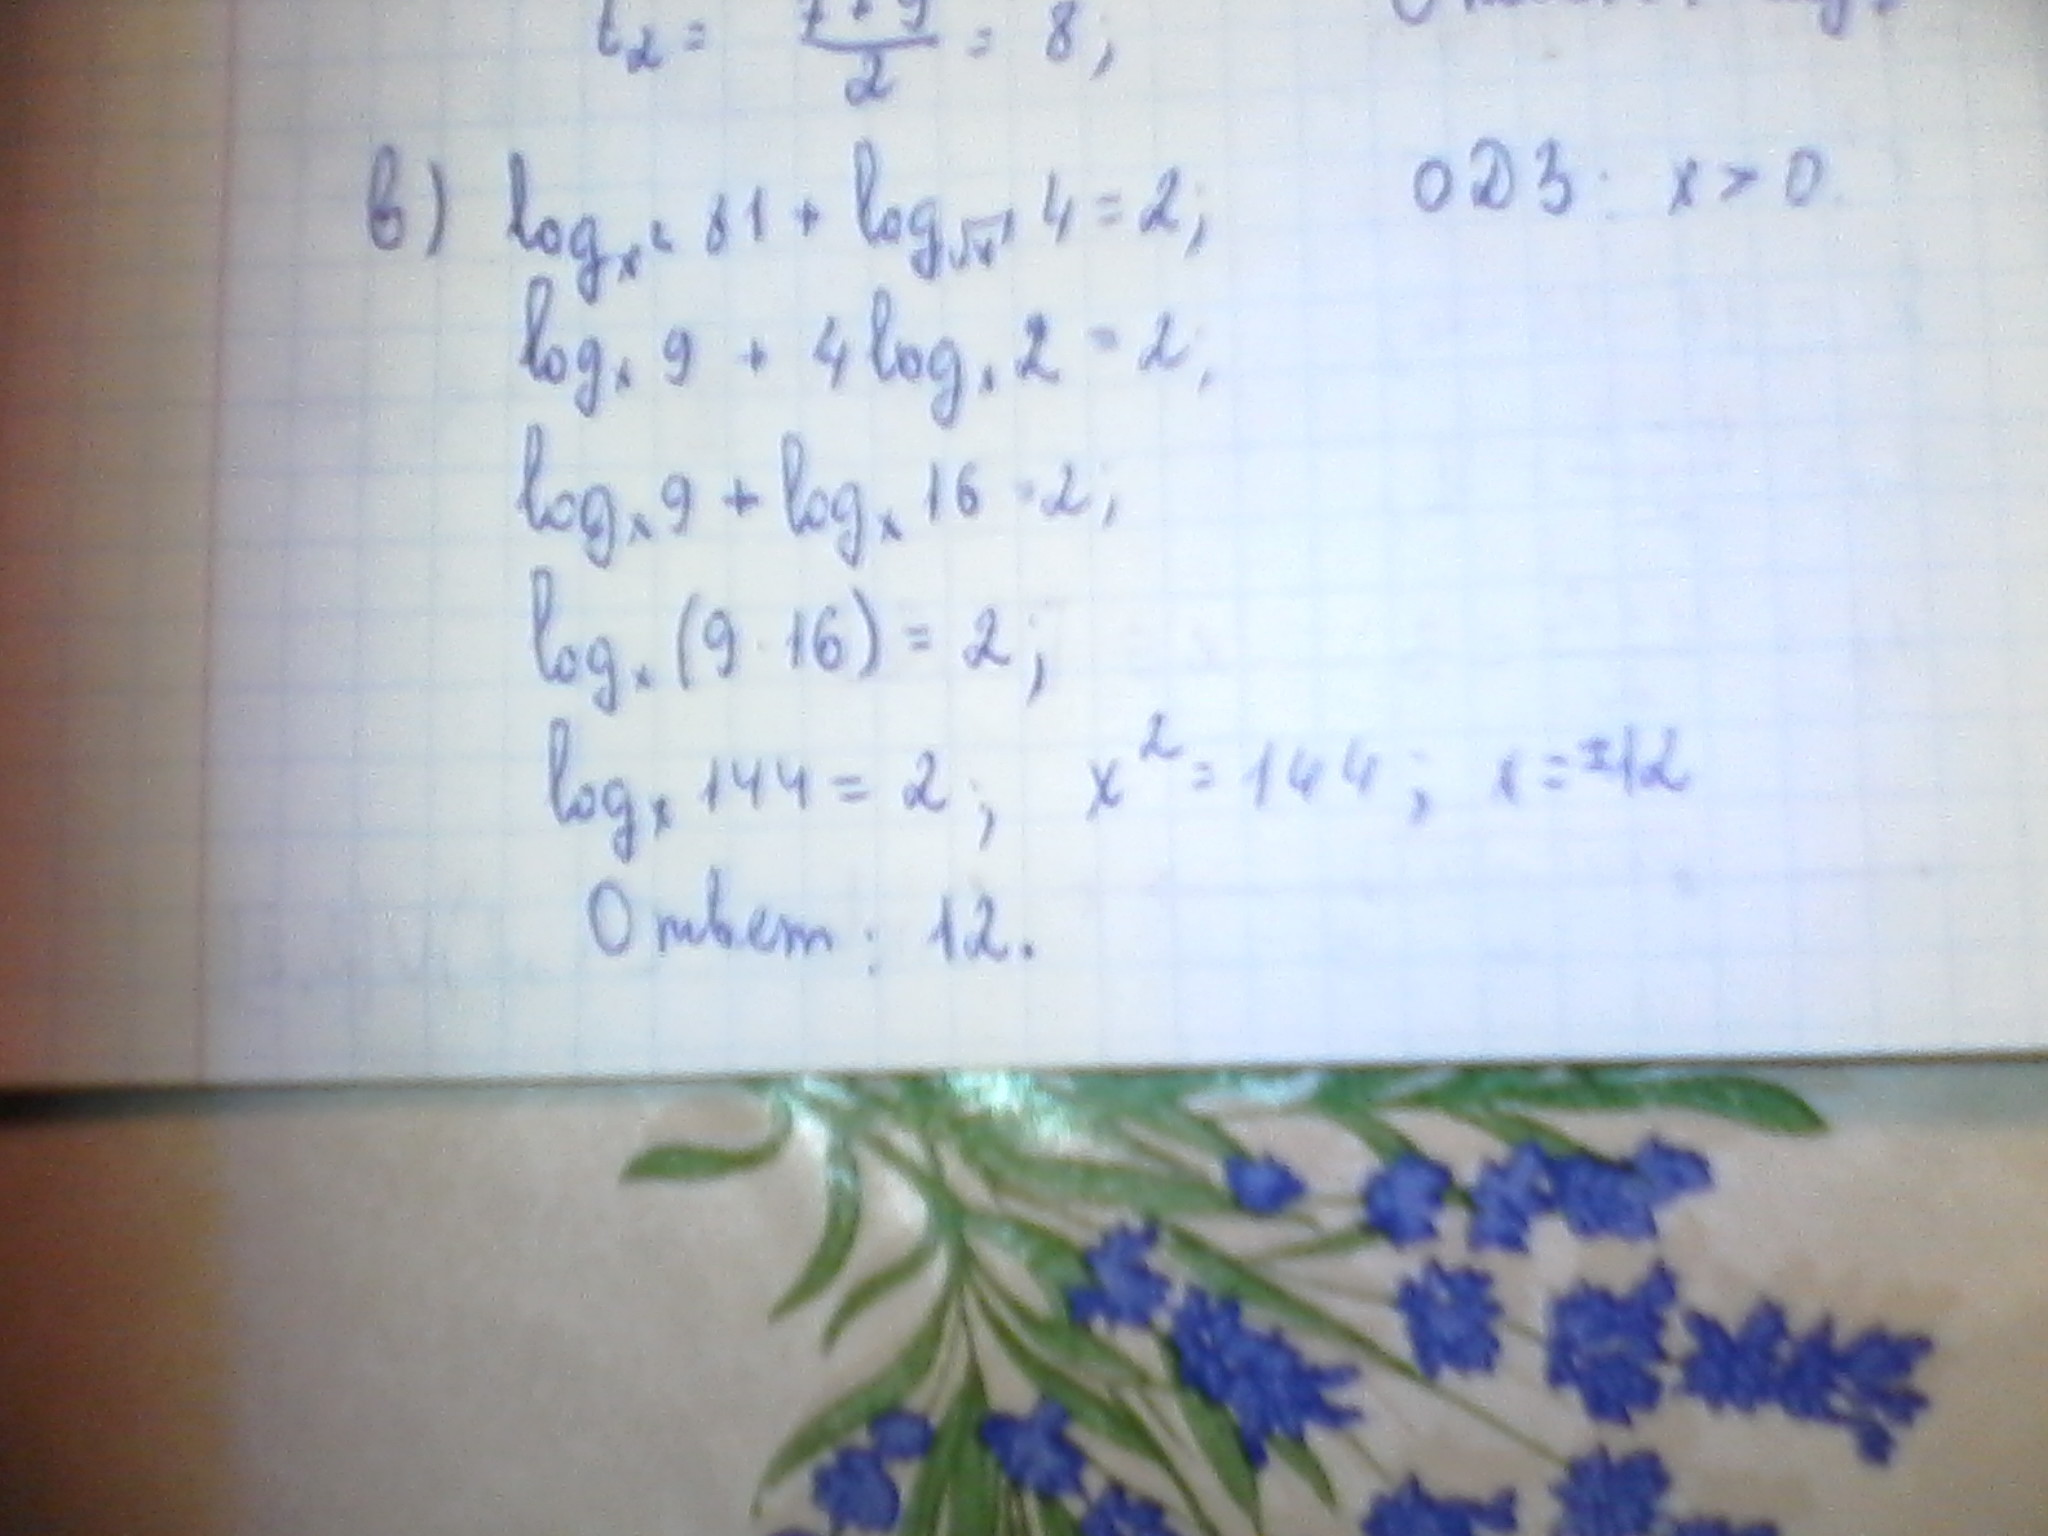 t₂ = 7+9/2 = 8;
в) logₓ² 81 + log√x 4 = 2; ОДЗ: x > 0.
logₓ 9 + 4 logₓ 2 = 2;
logₓ 9 + logₓ 16 = 2;
logₓ (9 · 16) = 2;
logₓ 144 = 2; x² = 144; x = ±12
Ответ: 12.